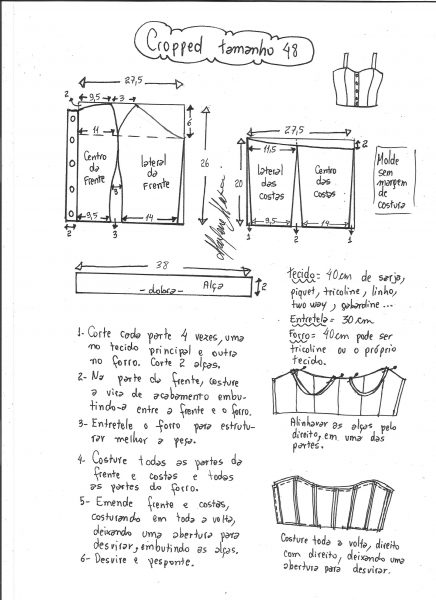 Cropped tamanho 48
27,5
2
9,5
3
6
11
26
Centro
da
Frente
lateral
da
Frente
3
9,5
14
2
3
27,5
2
11,5
20
Lateral
das
costas
Centro
das
costas
9,5
14
1
2
1
Molde
sem
margem
de
costura
38
- dobra -
Alça
2
tecido = 40cm de sarja,
piquet, tricoline, linho,
two way, gabardine...
Entretela = 30 cm
Forro = 40cm pode ser
tricoline ou o próprio
tecido.
1- Corte cada parte 4 vezes, uma
no tecido principal e outra
no forro. Corte 2 alças.
2- Na parte da frente, costure
a vira de acabamento embu-
tindo-a entre a frente e o forro.
3- Entretele o forro para estrutu-
rar melhor a peça.
4- Costure todas as partes da
frente e costas e todas
as partes do forro.
5- Emende frente e costas,
costurando em toda a volta,
deixando uma abertura para
desvirar, embutindo as alças.
6- Desvire e pesponte.
Alinhavar as alças pelo
direito, em uma das
partes.
Costure toda a volta, direito
com direito, deixando uma
abertura para desvirar.